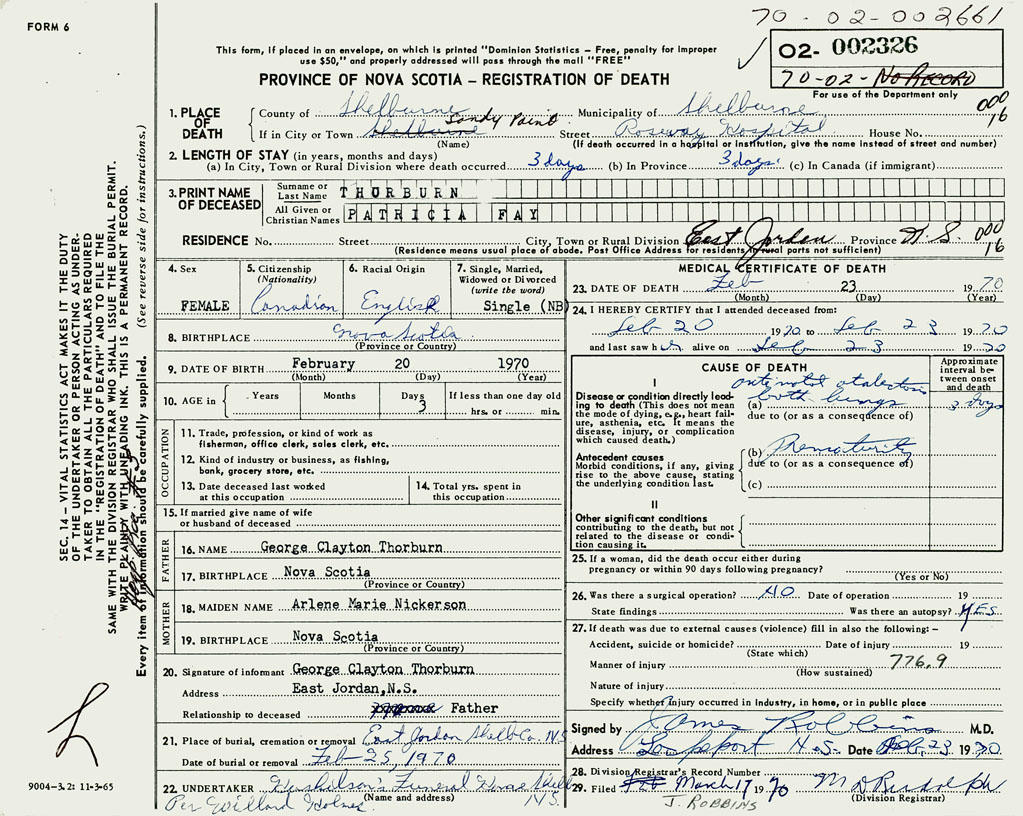 FORM 6
70-02-002661
This form, if placed in an envelope, on which is printed "Dominion Statistics – Free, penalty for improper
use $50," and properly addressed will pass through the mail "FREE"
02- 002326
70-02- No RECORD
For use of the Department only
PROVINCE OF NOVA SCOTIA – REGISTRATION OF DEATH
000
16
1. PLACE OF DEATH
County of Shelburne Municipality of Shelburne
If in City or Town Shelburne Sandy Point Street Roseway Hospital House No.
(Name) (If death occurred in a hospital or institution, give the name instead of street and number)
2. LENGTH OF STAY (in years, months and days)
(a) In City, Town or Rural Division where death occurred 3 days (b) In Province 3 days (c) In Canada (if immigrant)
3. PRINT NAME OF DECEASED
Surname or Last Name THORBURN
All Given or Christian Names PATRICIA FAY
RESIDENCE No. Street City, Town or Rural Division East Jordan Province N.S. 000
16
(Residence means usual place of abode. Post Office Address for residents in rural parts not sufficient)
4. Sex
FEMALE
5. Citizenship
(Nationality)
Canadian
6. Racial Origin
English
7. Single, Married,
Widowed or Divorced
(write the word)
Single (NB)
8. BIRTHPLACE Nova Scotia
(Province or Country)
9. DATE OF BIRTH February 20 1970
(Month) (Day) (Year)
10. AGE in Years Months Days 3 If less than one day old
hrs. or min.
OCCUPATION
11. Trade, profession, or kind of work as
fisherman, office clerk, sales clerk, etc.
12. Kind of industry or business, as fishing,
bank, grocery store, etc.
13. Date deceased last worked
at this occupation
14. Total yrs. spent in
this occupation
15. If married give name of wife
or husband of deceased
FATHER
16. NAME George Clayton Thorburn
17. BIRTHPLACE Nova Scotia
(Province or Country)
MOTHER
18. MAIDEN NAME Arlene Marie Nickerson
19. BIRTHPLACE Nova Scotia
(Province or Country)
20. Signature of informant George Clayton Thorburn
Address East Jordan,N.S.
Relationship to deceased Father
21. Place of burial, cremation or removal East Jordan Shelb Co. N.S
Date of burial or removal Feb 25, 1970
22. UNDERTAKER Funeral Home Shelb
(Name and address) N.S.
Per Willard Holmes
MEDICAL CERTIFICATE OF DEATH
23. DATE OF DEATH Feb 23 1970
(Month) (Day) (Year)
24. I HEREBY CERTIFY that I attended deceased from:
Feb 20 1970 to Feb 23 1970
and last saw her alive on Feb 23 1970
CAUSE OF DEATH
Approximate interval between onset and death
I
Disease or condition directly leading to death (This does not mean
the mode of dying, e.g., heart failure, asthenia, etc. It means the
disease, injury, or complication
which caused death.)
(a) both lungs 3 days
due to (or as a consequence of)
Antecedent causes
Morbid conditions, if any, giving
rise to the above cause, stating
the underlying condition last.
(b) Prematurity
due to (or as a consequence of)
(c)
II
Other significant conditions
contributing to the death, but not
related to the disease or condition causing it.
25. If a woman, did the death occur either during
pregnancy or within 90 days following pregnancy?
(Yes or No)
26. Was there a surgical operation? NO Date of operation 19
State findings Was there an autopsy? YES
27. If death was due to external causes (violence) fill in also the following: –
Accident, suicide or homicide? Date of injury 19
(State which)
Manner of injury 776.9
(How sustained)
Nature of injury
Specify whether injury occurred in industry, in home, or in public place
Signed by James Robbins M.D.
Address Lockeport N.S. Date Feb. 23 1970
28. Division Registrar's Record Number
29. Filed Feb March 17 1970 M D Rudolph
J. ROBBINS (Division Registrar)
SEC. 14 – VITAL STATISTICS ACT MAKES IT THE DUTY
OF THE UNDERTAKER OR PERSON ACTING AS UNDER-
TAKER TO OBTAIN ALL THE PARTICULARS REQUIRED
IN THE "REGISTRATION OF DEATH" AND TO FILE THE
SAME WITH THE DIVISION REGISTRAR WHO SHALL ISSUE THE BURIAL PERMIT.
WRITE PLAINLY WITH UNFADING INK. THIS IS A PERMANENT RECORD.
Every item of information should be carefully supplied. (See reverse side for instructions.)
9004-3.2: 11-3-65